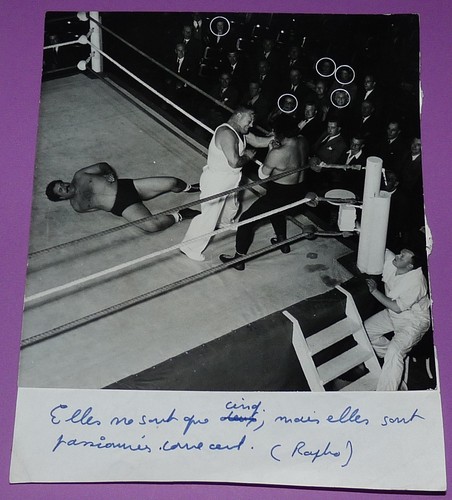 Elles ne sont que deux cinq, mais elles sont
passionnés comme cent. (Rapho)